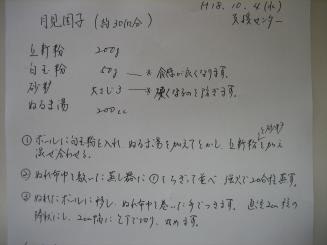 H18.10.4(水)
月見団子 (約30個分) 支援センター
上新粉 200g
白玉粉 50g ─ * 食感が良くなります。
砂糖 大さじ3 ─ * 硬くなるのを防ぎます。
ぬるま湯 200cc
と砂糖
① ボールに白玉粉を入れ ぬるま湯を加えてとかし、上新粉を加え
混ぜ合わせる。
② ぬれ布巾を敷いた蒸し器に①をちぎって並べ 強火で20分位蒸す。
③ ぬれたボールに移し、ぬれ布巾を巻いた手でつきます。直径2cm位の
棒状にし、2cm幅に